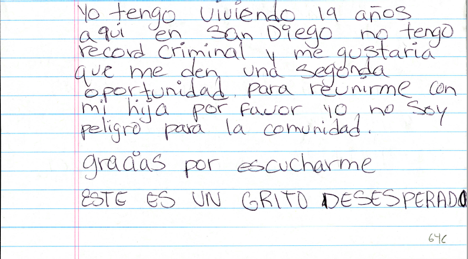 Yo tengo viviendo 19 años
aqui en San Diego no tengo
record criminal y me gustaria
que me den una segonda
oportunidad para reunirme con
mi hija por favor yo no soy
peligro para la comunidad.
gracias por escucharme
ESTE ES UN GRITO DESESPERADO
64c